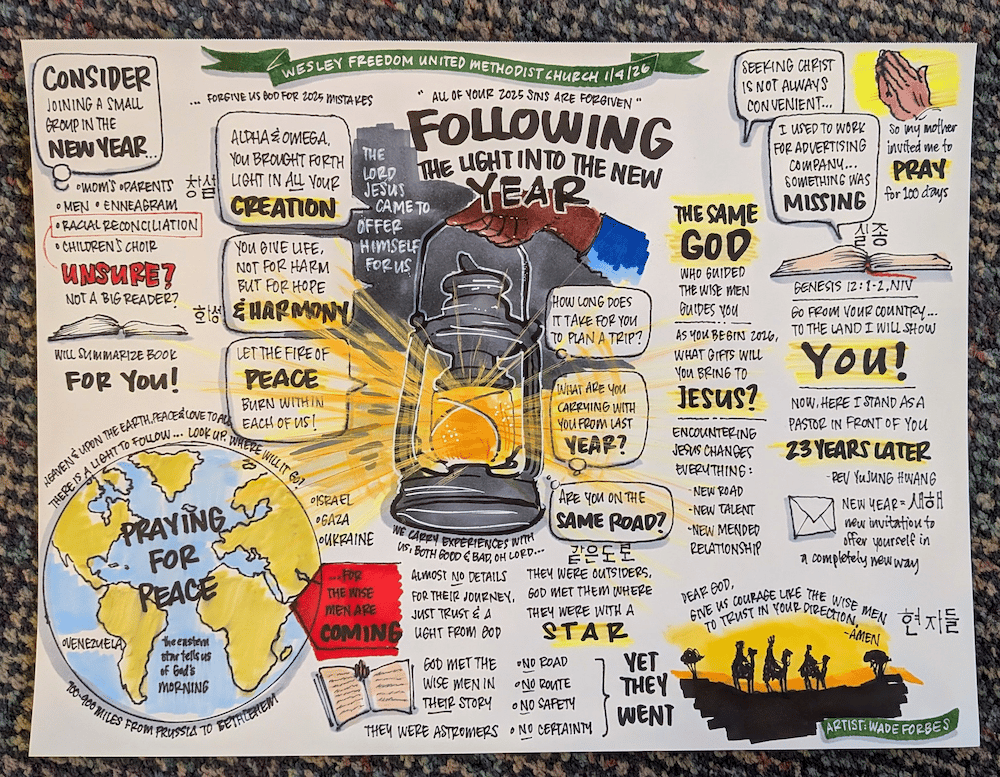 WESLEY FREEDOM UNITED METHODIST CHURCH 1/4/26
CONSIDER
JOINING A SMALL
GROUP IN THE
NEW YEAR...
MOM'S PARENTS
MEN ENNEAGRAM
RACIAL RECONCILIATION
CHILDREN'S CHOIR
UNSURE?
NOT A BIG READER?
WILL SUMMARIZE BOOK
FOR YOU!
... FORGIVE US GOD FOR 2025 MISTAKES
ALPHA & OMEGA,
YOU BROUGHT FORTH
LIGHT IN ALL YOUR
CREATION
창설
YOU GIVE LIFE,
NOT FOR HARM
BUT FOR HOPE
& HARMONY
화성
LET THE FIRE OF
PEACE
BURN WITHIN
EACH OF US!
THE
LORD
JESUS
CAME TO
OFFER
HIMSELF
FOR US
"ALL OF YOUR 2025 SINS ARE FORGIVEN"
FOLLOWING
THE LIGHT INTO THE NEW
YEAR
HOW LONG DOES
IT TAKE FOR YOU
TO PLAN A TRIP?
WHAT ARE YOU
CARRYING WITH
YOU FROM LAST
YEAR?
ARE YOU ON THE
SAME ROAD?
같은 도로
WE CARRY EXPERIENCES WITH
US, BOTH GOOD & BAD, OH LORD...
THE SAME
GOD
WHO GUIDED
THE WISE MEN
GUIDES YOU
AS YOU BEGIN 2026,
WHAT GIFTS WILL
YOU BRING TO
JESUS?
ENCOUNTERING
JESUS CHANGES
EVERYTHING:
-NEW ROAD
-NEW TALENT
-NEW MENDED
RELATIONSHIP
SEEKING CHRIST
IS NOT ALWAYS
CONVENIENT...
I USED TO WORK
FOR ADVERTISING
COMPANY...
SOMETHING WAS
MISSING
실종
So my mother
invited me to
PRAY
for 100 days
GENESIS 12:1-2, NIV
GO FROM YOUR COUNTRY...
TO THE LAND I WILL SHOW
YOU!
NOW, HERE I STAND AS A
PASTOR IN FRONT OF YOU
23 YEARS LATER
-REV YUJUNG HWANG
NEW YEAR = 새해
new invitation to
offer yourself in
a completely new way
HEAVEN & UPON THE EARTH, PEACE & LOVE TO ALL
THERE IS A LIGHT TO FOLLOW... LOOK UP. WHERE WILL IT GO?
PRAYING
FOR
PEACE
ISRAEL
GAZA
UKRAINE
VENEZUELA
the eastern
star tells us
of God's
MORNING
700-900 MILES FROM PRUSSIA TO BETHLEHEM
...FOR
THE WISE
MEN ARE
COMING
ALMOST NO DETAILS
FOR THEIR JOURNEY,
JUST TRUST & A
LIGHT FROM GOD
THEY WERE OUTSIDERS,
GOD MET THEM WHERE
THEY WERE WITH A
STAR
GOD MET THE
WISE MEN IN
THEIR STORY
THEY WERE ASTROMERS
NO ROAD
NO ROUTE
NO SAFETY
NO CERTAINTY
YET
THEY
WENT
DEAR GOD,
GIVE US COURAGE LIKE THE WISE MEN
TO TRUST IN YOUR DIRECTION,
-AMEN
현자들
ARTIST: WADE FORBES